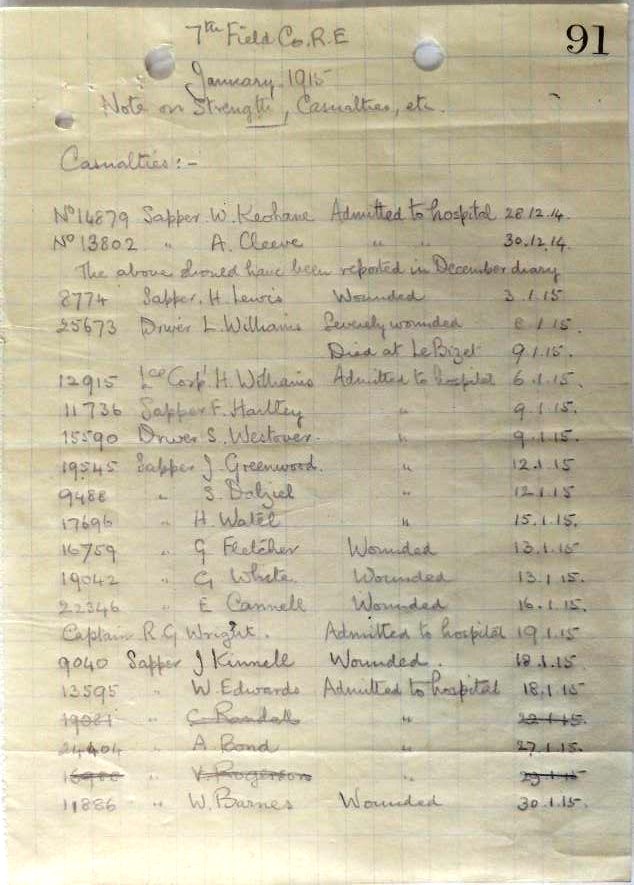 91
7th Field Co. R.E
January 1915
Note on Strength, Casualties, etc.
Casualties:-
No 14879 Sapper W. Keohane Admitted to hospital 28.12.14.
No 13802 " A. Cleeve " " 30.12.14.
The above should have been reported in December diary
8774 Sapper H. Lewis Wounded 3.1.15
25673 Driver L. Williams Severely wounded 1.15.
Died at Le Bizet 9.1.15.
12915 Lce Corpl H. Williams Admitted to hospital 6.1.15.
11736 Sapper F. Hartley " 9.1.15.
15590 Driver S. Westover. " 9.1.15.
19545 Sapper J. Greenwood. " 12.1.15
9488 " S. Dalziel " 12.1.15
17696 " H. Watel " 15.1.15.
16759 " G Fletcher Wounded 13.1.15
19042 " G White. Wounded 13.1.15.
22346 " E Cannell Wounded 16.1.15.
Captain R.G Wright. Admitted to hospital 19.1.15
9040 Sapper J Kinnell Wounded. 18.1.15.
13595 " W. Edwards Admitted to hospital 18.1.15
" C Randall " 22.1.15.
24404 " A Bond " 27.1.15.
" V. Rogerson "
11886 " W. Barnes Wounded 30.1.15.